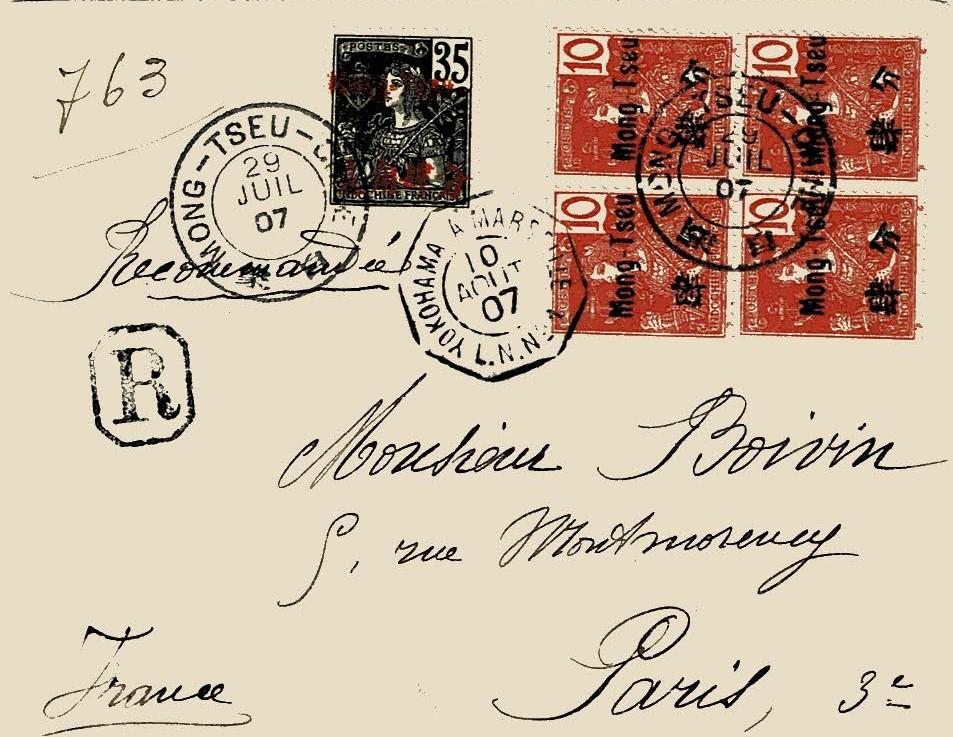 763
POSTES
35
INDOCHINE FRANÇAISE
10
Mong Tseu
肆
分
10
Mong Tseu
肆
分
10
Mong Tseu
肆
10
Mong Tseu
肆
分
MONG-TSEU-
29
JUIL
07
MONG-TSEU-
29
JUIL
07
Recommandée
YOKOHAMA A MARSEILLE
10
AOUT
07
L.N.N°
R
Monsieur Boivin
5, rue Montmorency
Paris, 3e
France